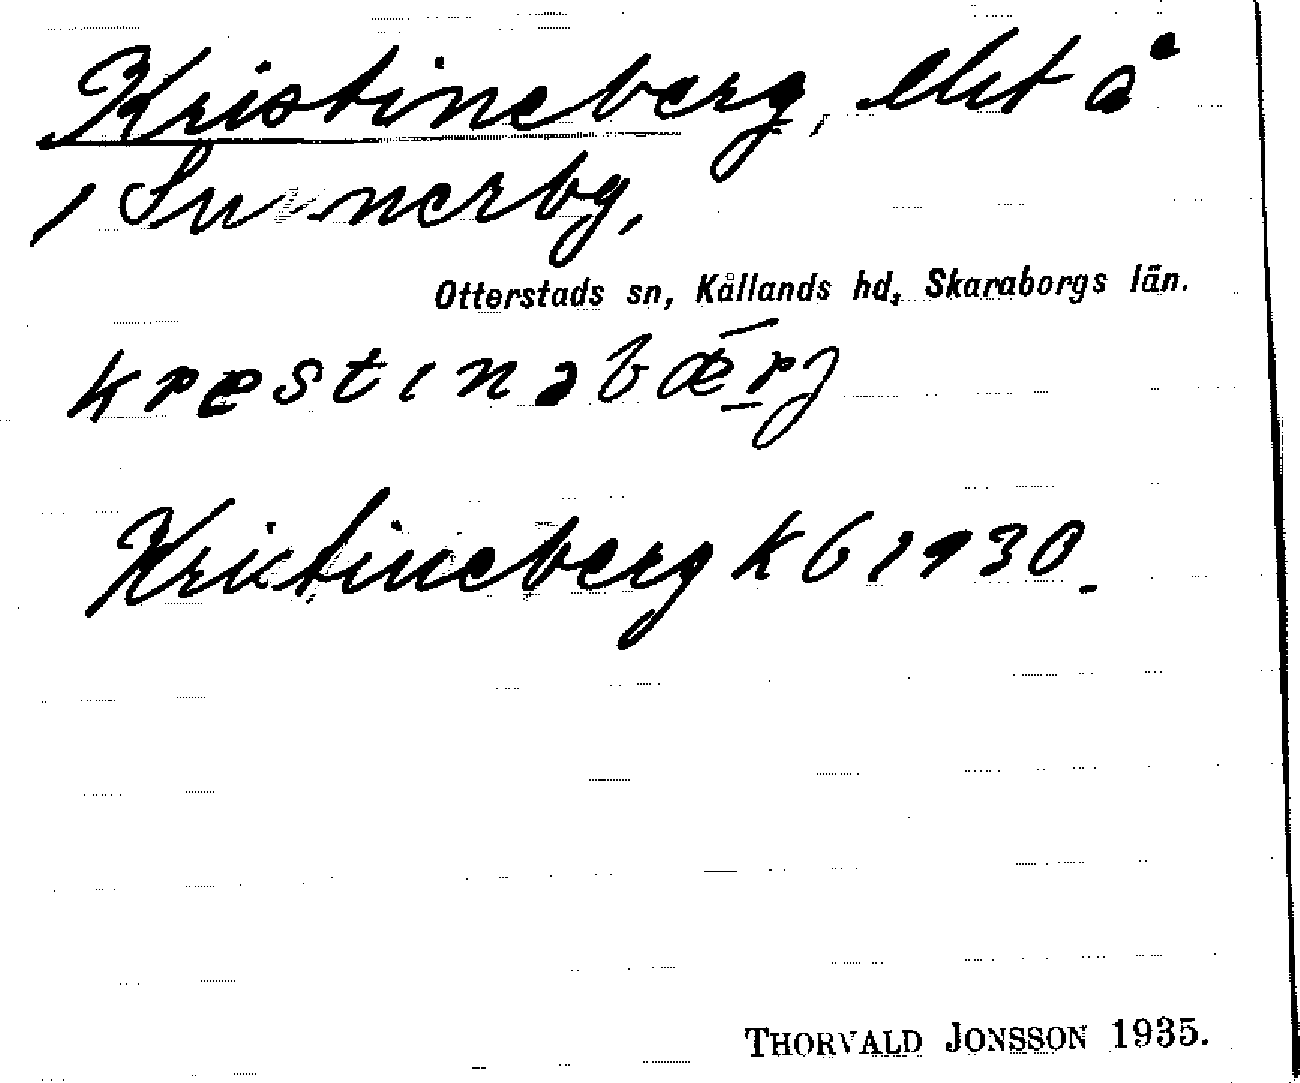 Kristineberg, lht å
1 Sunnerby,
Otterstads sn, Kållands hd, Skaraborgs län.
krestinəbærj
Kristineberg k b 1930.
THORVALD JONSSON 1935.